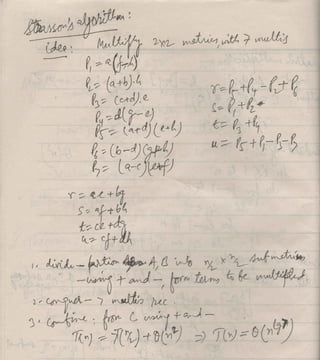 Strassen's algorithm:
idea: Multiply 2x2 metrics, with 7 multis
P1 = a(f-h)
P2 = (a+b).h
P3 = (c+d).e
P4 = d(g-e)
P5 = (a+d)(e+h)
P6 = (b-d)(g+h)
P7 = (a-c)(e+f)
r = P5+P4-P2+P6
s = P1+P2
t = P3+P4
u = P5+P1-P3-P7
r = ae+bg
s = af+bh
t = ce+dg
u = cf+dh
1. divide - partion A,B into n/2 x n/2 submetrices
- using + and -, form terms to be multiplied
2. conqur -> multis rec.
3. combine: from C using + and -
T(n) = 7T(n/2)+Θ(n²) => T(n) = Θ(n^lg7)